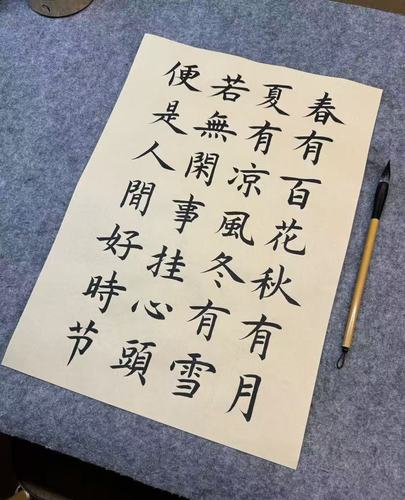 春有百花秋有月
夏有凉風冬有雪
若無閑事挂心頭
便是人間好時节